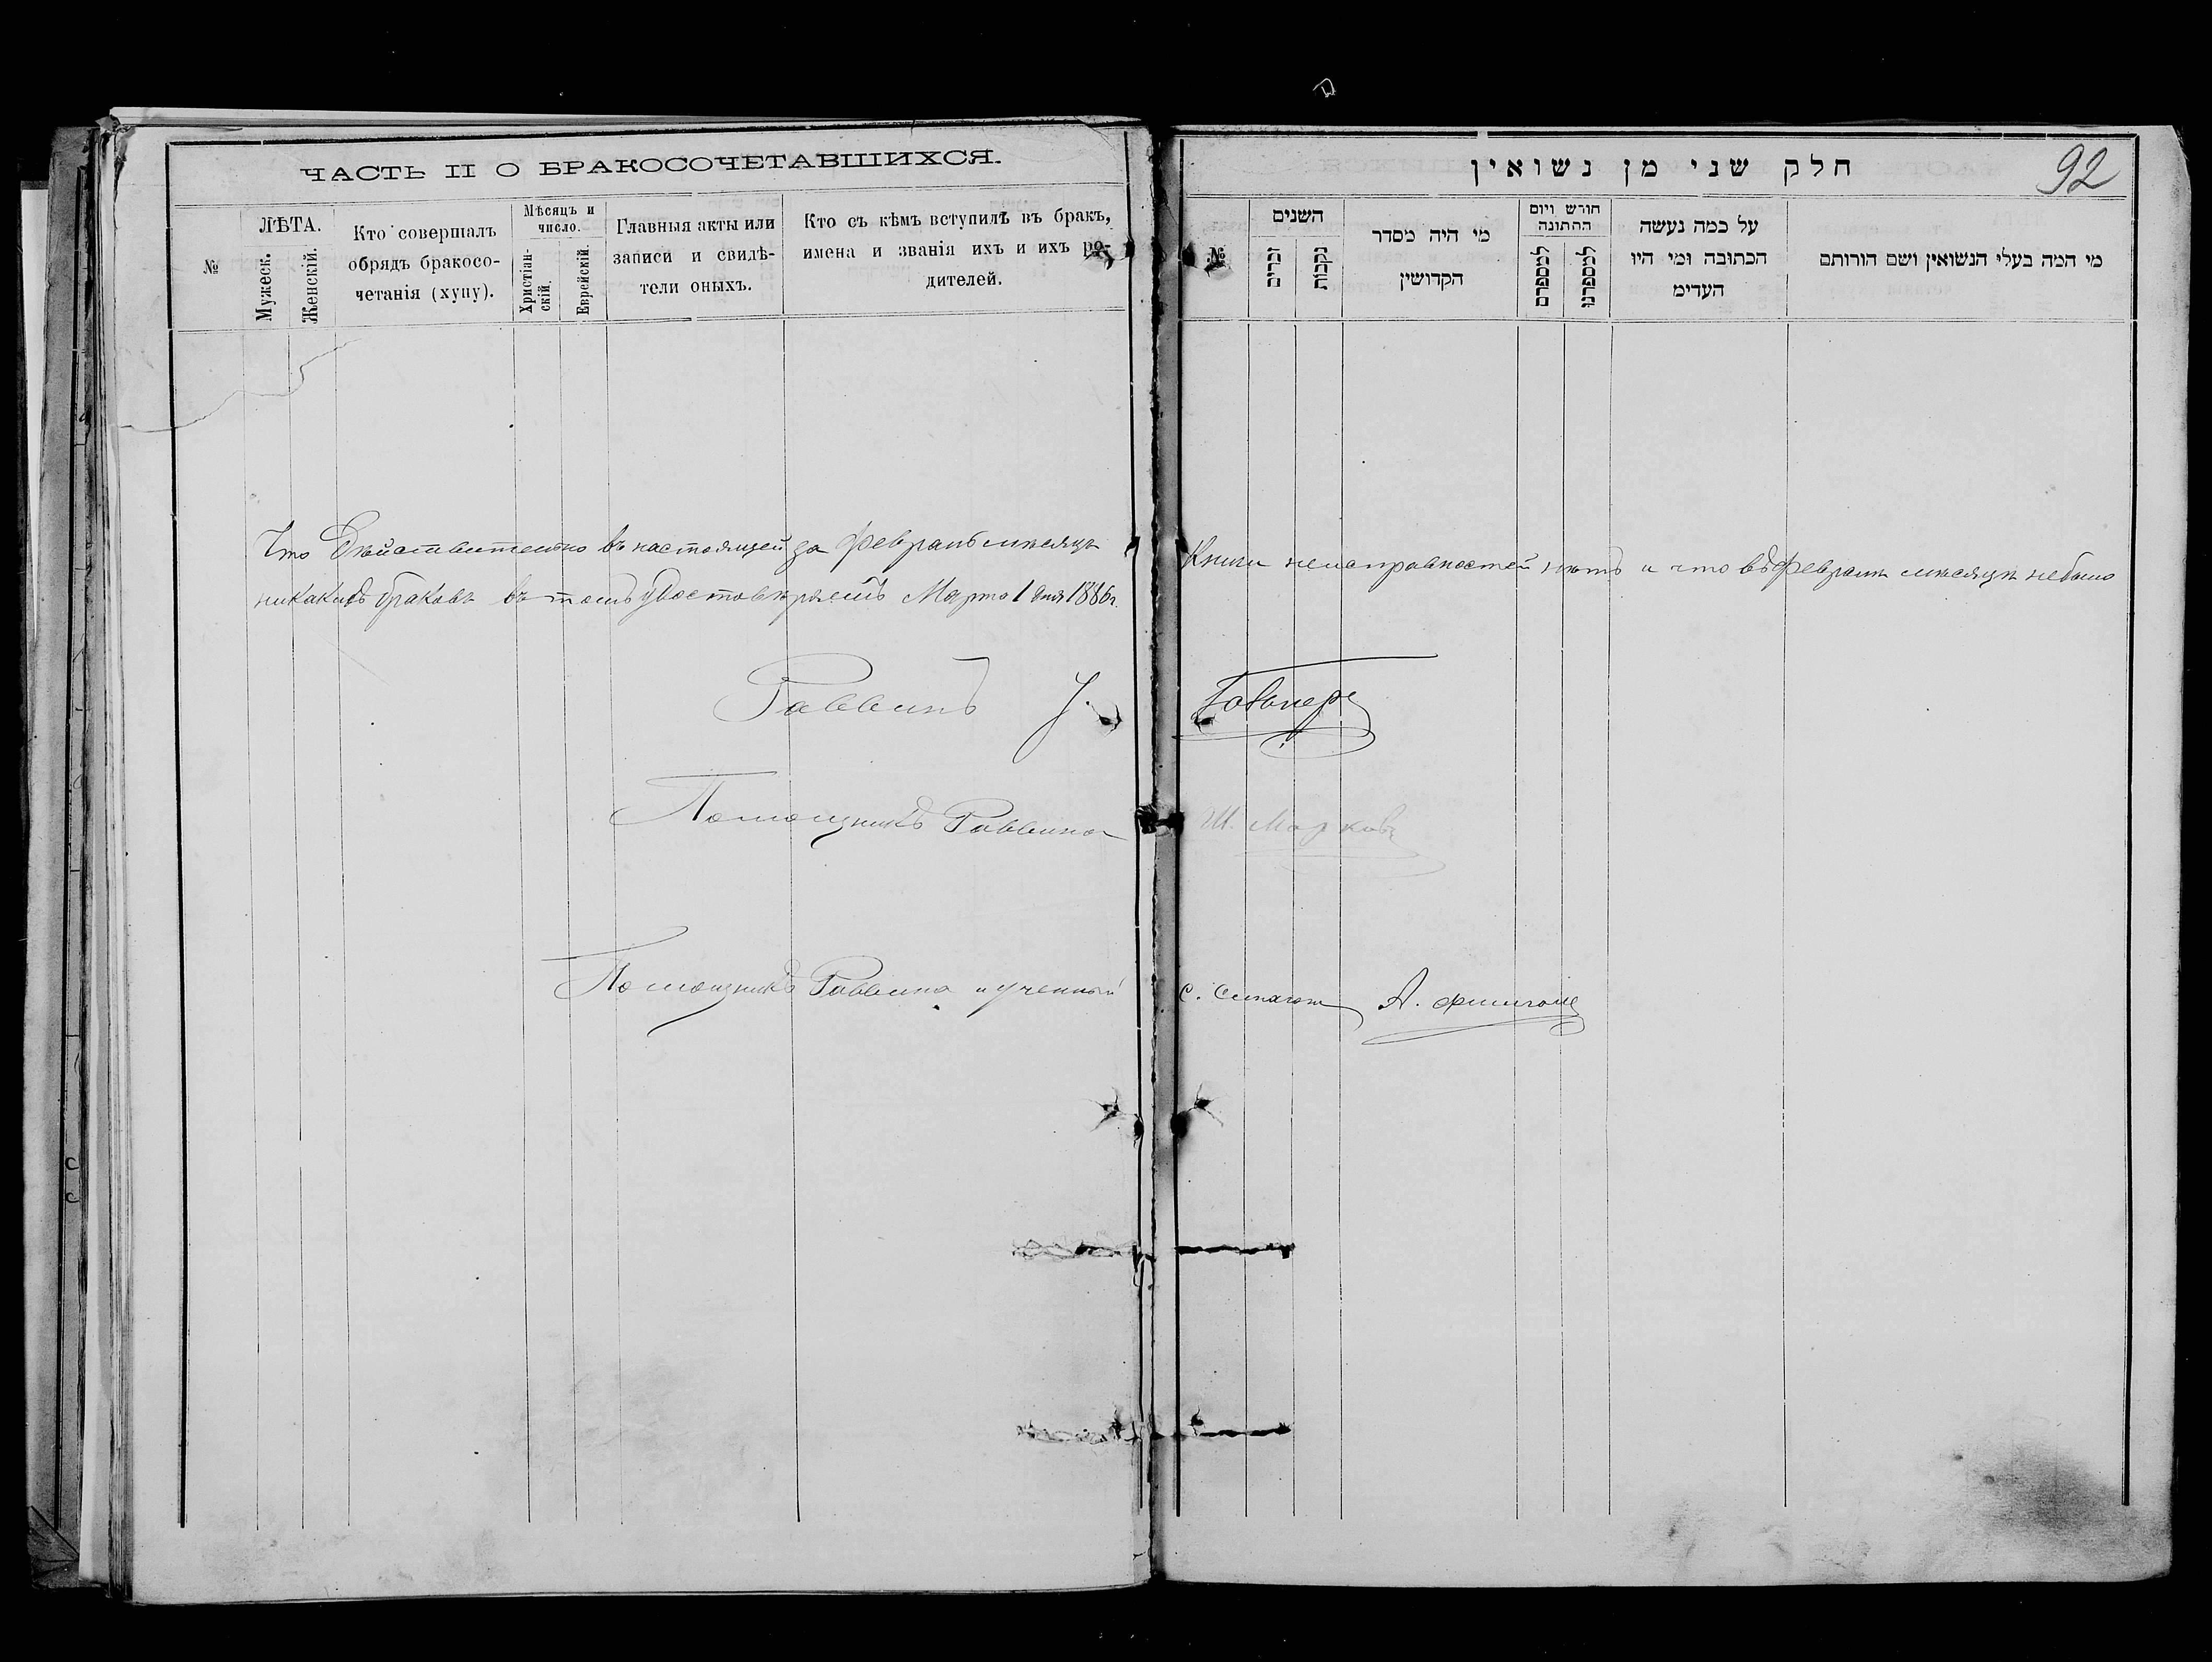 ЧАСТЬ II О БРАКОСОЧЕТАВШИХСЯ.
№
ЛѢТА.
Мужеск.
Женскій.
Кто совершалъ
обрядъ бракосо-
четанія (хупу).
Мѣсяцъ и
число.
Христіан-
скій.
Еврейскій.
Главныя акты или
записи и свидѣ-
тели оныхъ.
Кто съ кѣмъ вступилъ въ бракъ,
имена и званія ихъ и ихъ ро-
дителей.
חלק שני מן נשואין
92
№
השנים
זכרים
נקבות
מי היה מסדר
הקדושין
חורש ויום
החתונה
למספרם
למספרנו
על כמה נעשה
הכתובה ומי היו
העדים
מי המה בעלי הנשואין ושם הורותם
Что дѣйствительно въ настоящей за февраль мѣсяцъ Книги неисправностей нѣтъ и что въ февралѣ мѣсяцѣ небыло
никакихъ браковъ въ томъ удостовѣряемъ Марта 1 дня 1886 г.
Раввинъ
Помощникъ Раввина Ш. Марковъ
Помощникъ Раввина и ученый С. А.